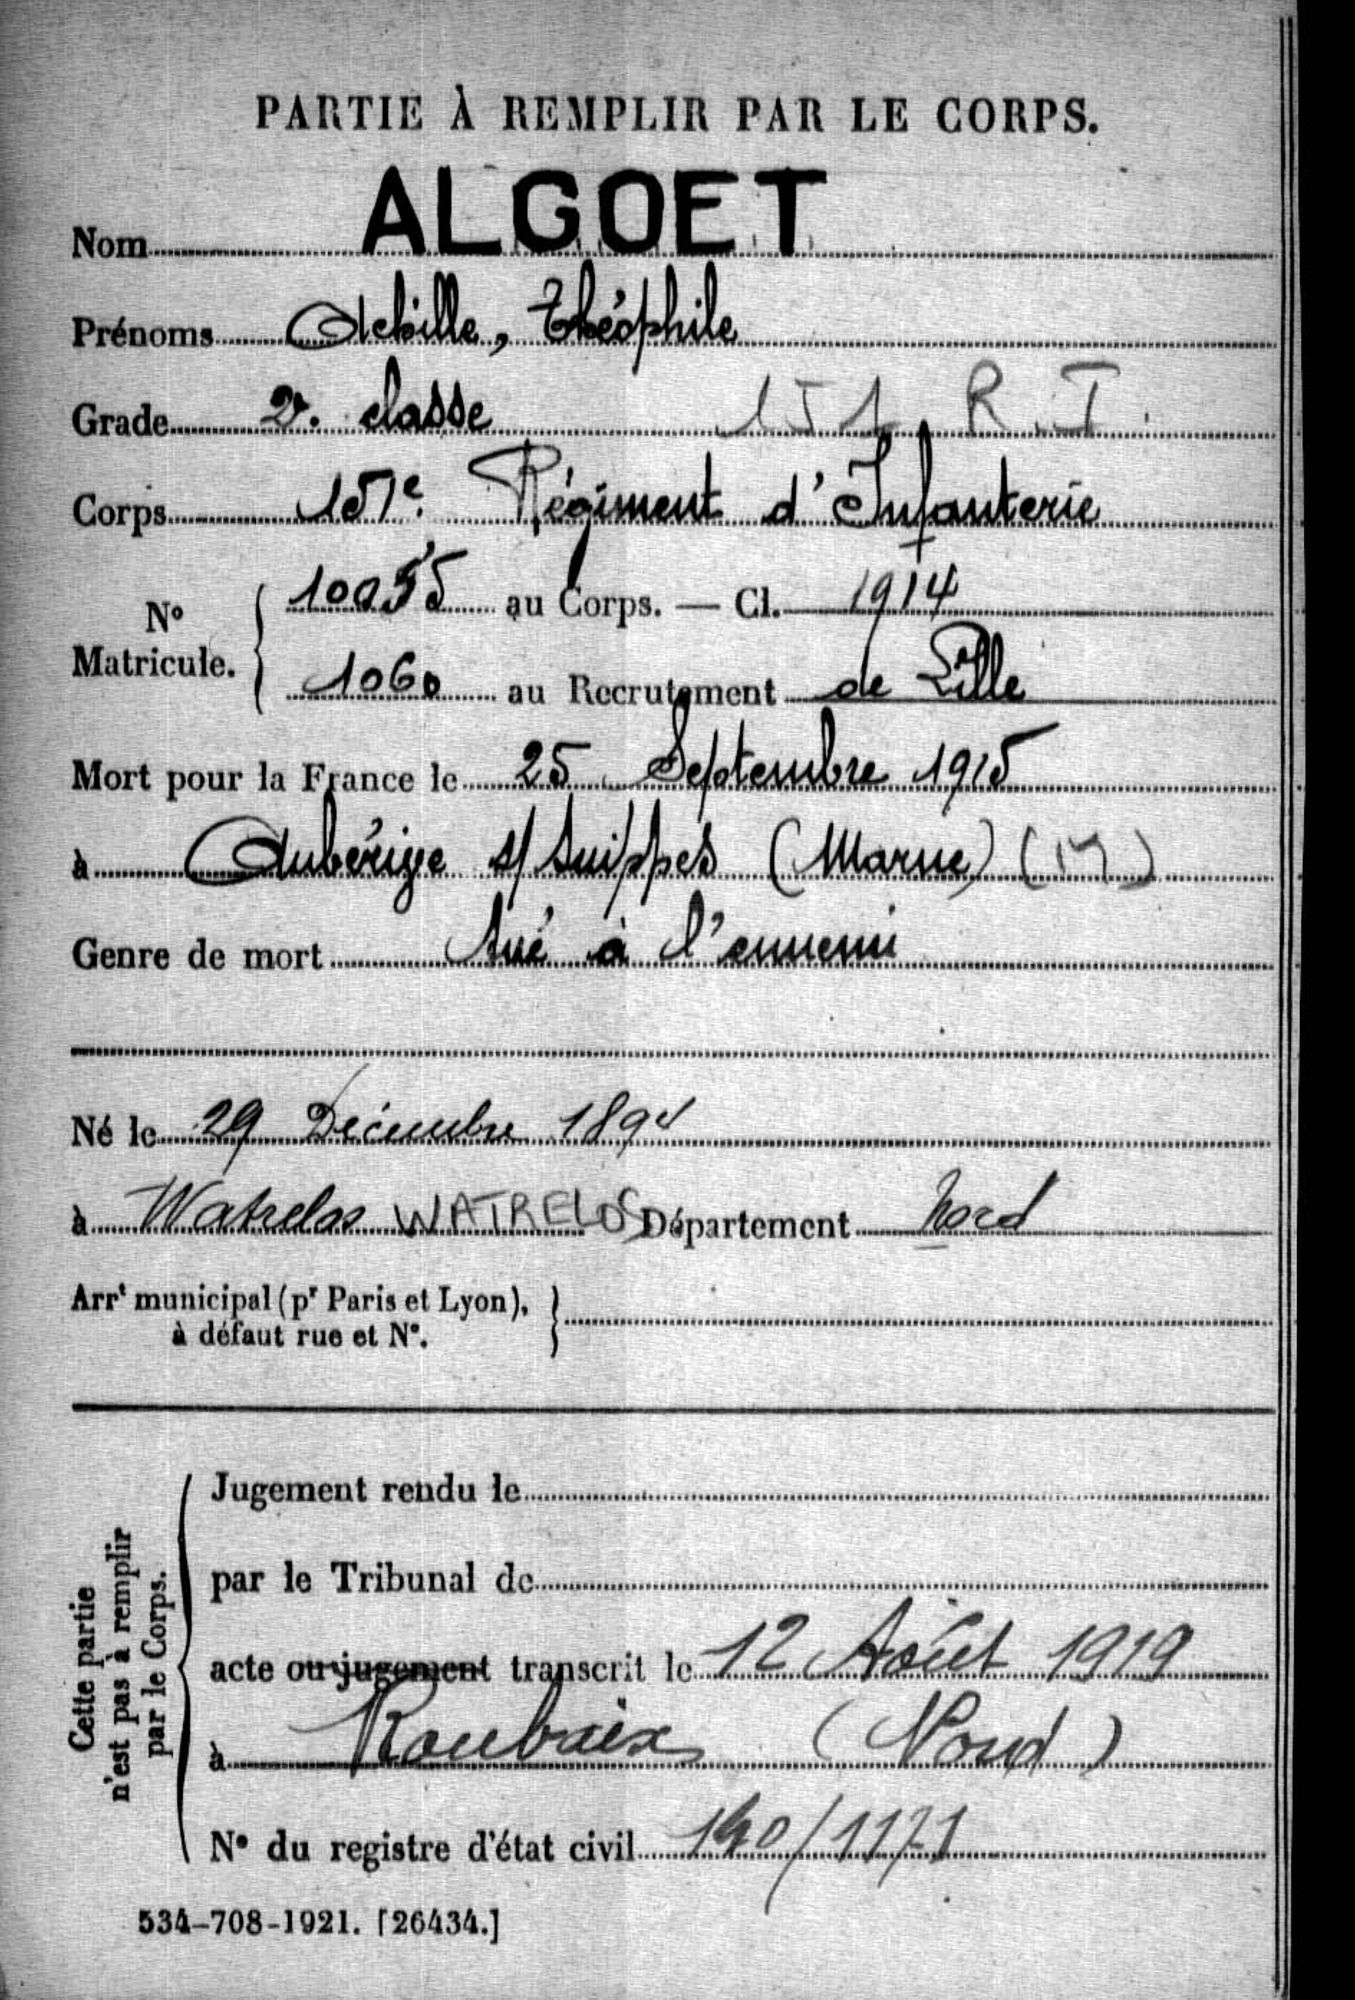 PARTIE À REMPLIR PAR LE CORPS.
Nom ALGOET
Prénoms Achille, Théophile
Grade 2e. classe 151 R.I.
Corps 151e. Régiment d'Infanterie
N° Matricule. 10055 au Corps. — Cl. 1914
1060 au Recrutement de Lille
Mort pour la France le 25 Septembre 1915
à Aubérive s/ Suippes (Marne) (M)
Genre de mort tué à l'ennemi
Né le 29 Décembre 1894
à Watrelos WATRELOS Département Nord
Arrt municipal (pr Paris et Lyon),
à défaut rue et N°.
Cette partie
n'est pas à remplir
par le Corps.
Jugement rendu le
par le Tribunal de
acte ou jugement transcrit le 12 Août 1919
à Roubaix (Nord)
N° du registre d'état civil 140/1171
534-708-1921. [26434.]